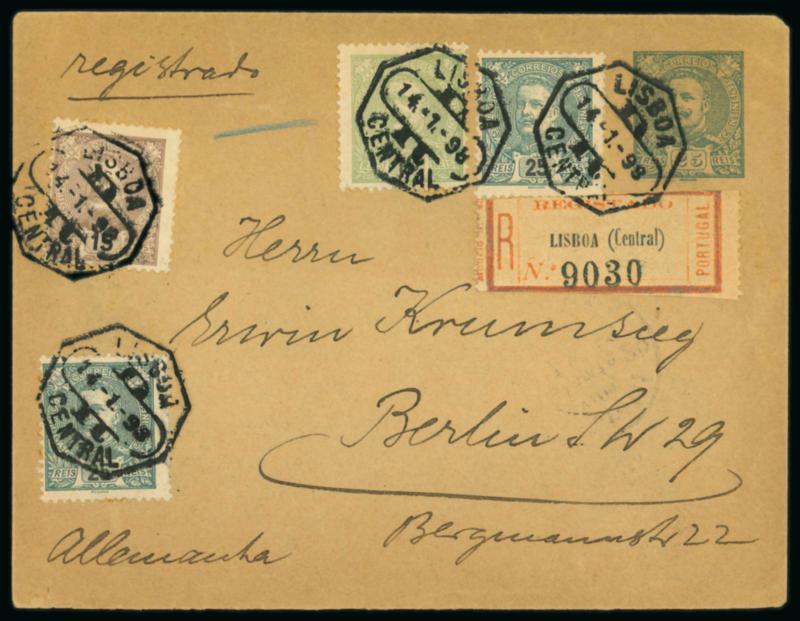 registrado
LISBOA
14.-1.-98
CENTRAL
LISBOA
14.-1.-98
CENTRAL
CORREIO
25
REIS
LISBOA
14.-1.-98
CENTRAL
25
REIS
LISBOA
14.-1.-98
CENTRAL
15
REGISTADO
R
LISBOA (Central)
N.º 9030
PORTUGAL
Herrn
Erwin Krumsieg
Berlin SW 29
Bergmannstr 22
LISBOA
14.-1.-98
CENTRAL
REIS
Allemanha